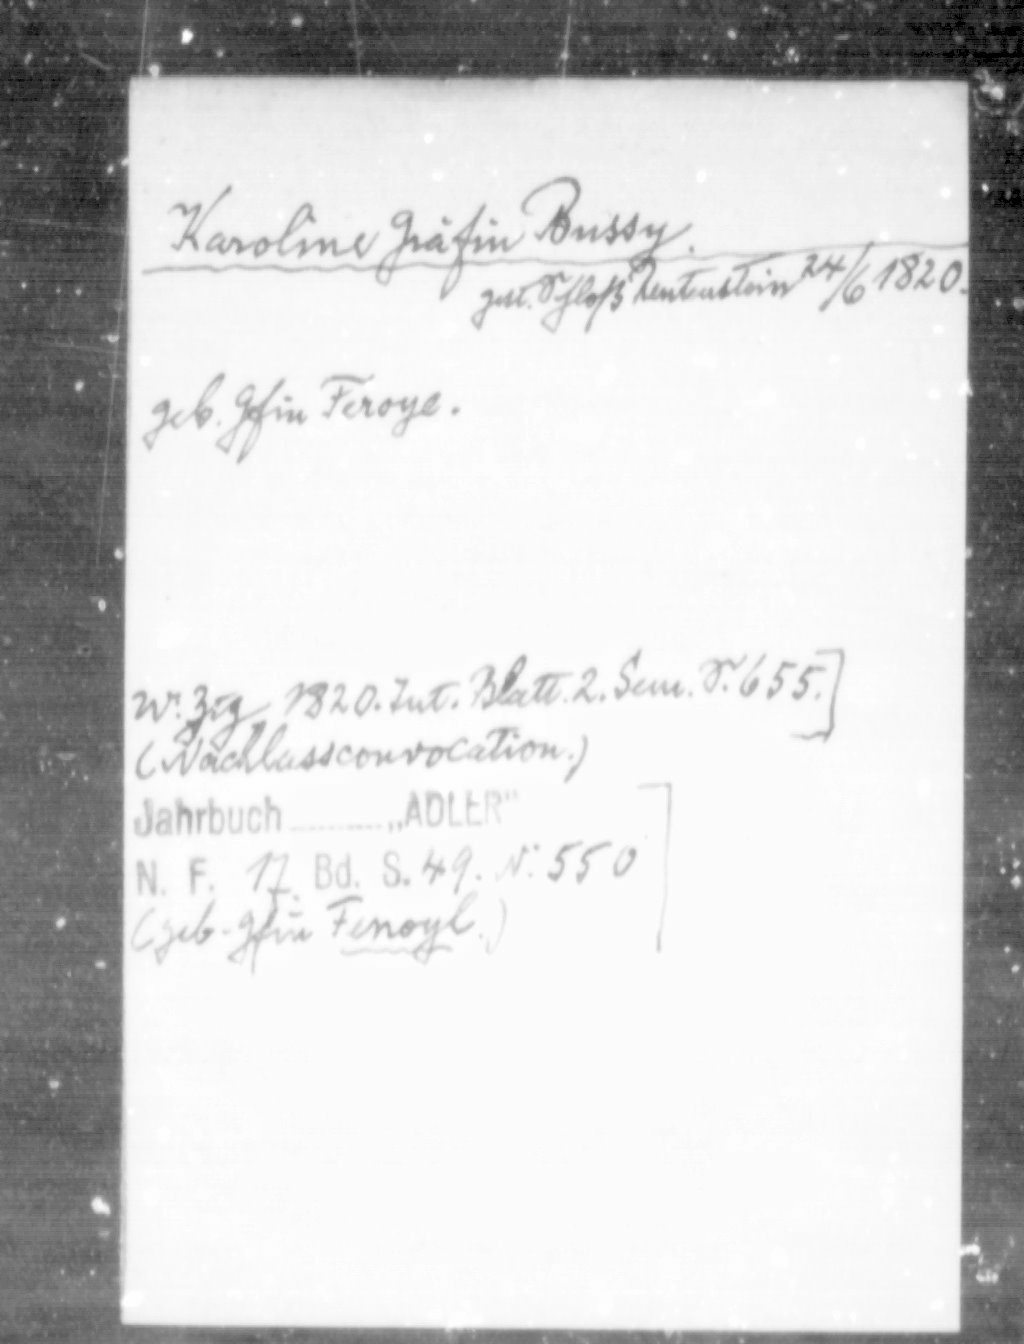 Karoline Gräfin Bussy.
gest. Schloß 24/6 1820.
geb. Gfin Feroye.
Wr. Ztg 1820. Int. Blatt. 2. Sem. S. 655.]
(Nachlassconvocation.)
Jahrbuch „ADLER"
N. F. 17. Bd. S. 49. N: 550
(geb. Gfin Fenoyl.)